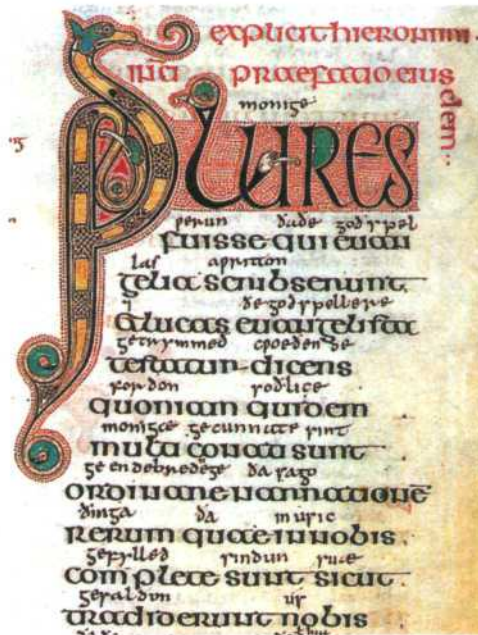 explicit hieronimi
praefatio eius
dem
monige
PLURES
werun ðaðe godspel
fuisse qui euan
las awritton
gelia scribserunt
ðe godspellere
& lucas euangelista
getrymmed cwoeðende
testatur dicens
forðon soðlice
quoniam quidem
monigce gecunnate sint
multi conati sunt
ge endebredege ða sago
ordinare narrationē
ðinga ða in usic
rerum quae in nobis
gefylled sindun suæ
complete sunt sicut
gesaldon us
tradiderunt nobis